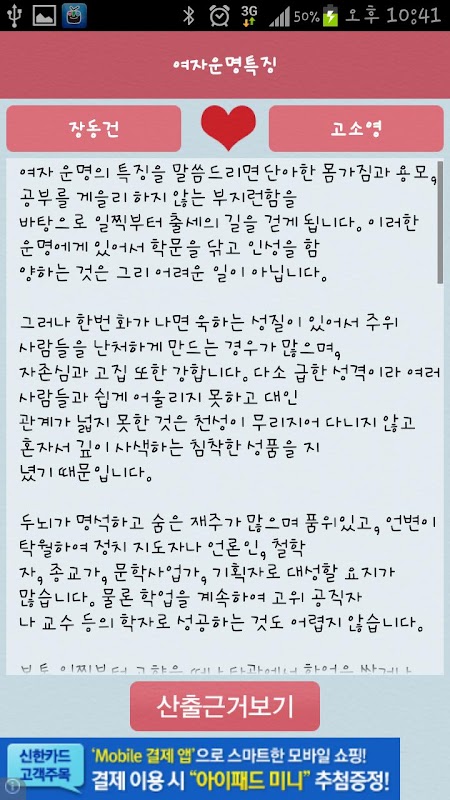 3G
50%
오후 10:41
여자운명특징
장동건
고소영
여자 운명의 특징을 말씀드리면 단아한 몸가짐과 용모,
공부를 게을리 하지 않는 부지런함을
바탕으로 일찍부터 출세의 길을 걷게 됩니다. 이러한
운명에게 있어서 학문을 닦고 인성을 함
양하는 것은 그리 어려운 일이 아닙니다.
그러나 한번 화가 나면 욱하는 성질이 있어서 주위
사람들을 난처하게 만드는 경우가 많으며,
자존심과 고집 또한 강합니다. 다소 급한 성격이라 여러
사람들과 쉽게 어울리지 못하고 대인
관계가 넓지 못한 것은 천성이 무리지어 다니지 않고
혼자서 깊이 사색하는 침착한 성품을 지
녔기 때문입니다.
두뇌가 명석하고 숨은 재주가 많으며 품위있고, 언변이
탁월하여 정치 지도자나 언론인, 철학
자, 종교가, 문학사업가, 기획자로 대성할 요지가
많습니다. 물론 학업을 계속하여 고위 공직자
나 교수 등의 학자로 성공하는 것도 어렵지 않습니다.
산출근거보기
신한카드
고객주목
'Mobile 결제 앱'으로 스마트한 모바일 쇼핑!
결제 이용 시 "아이패드 미니" 추첨증정!